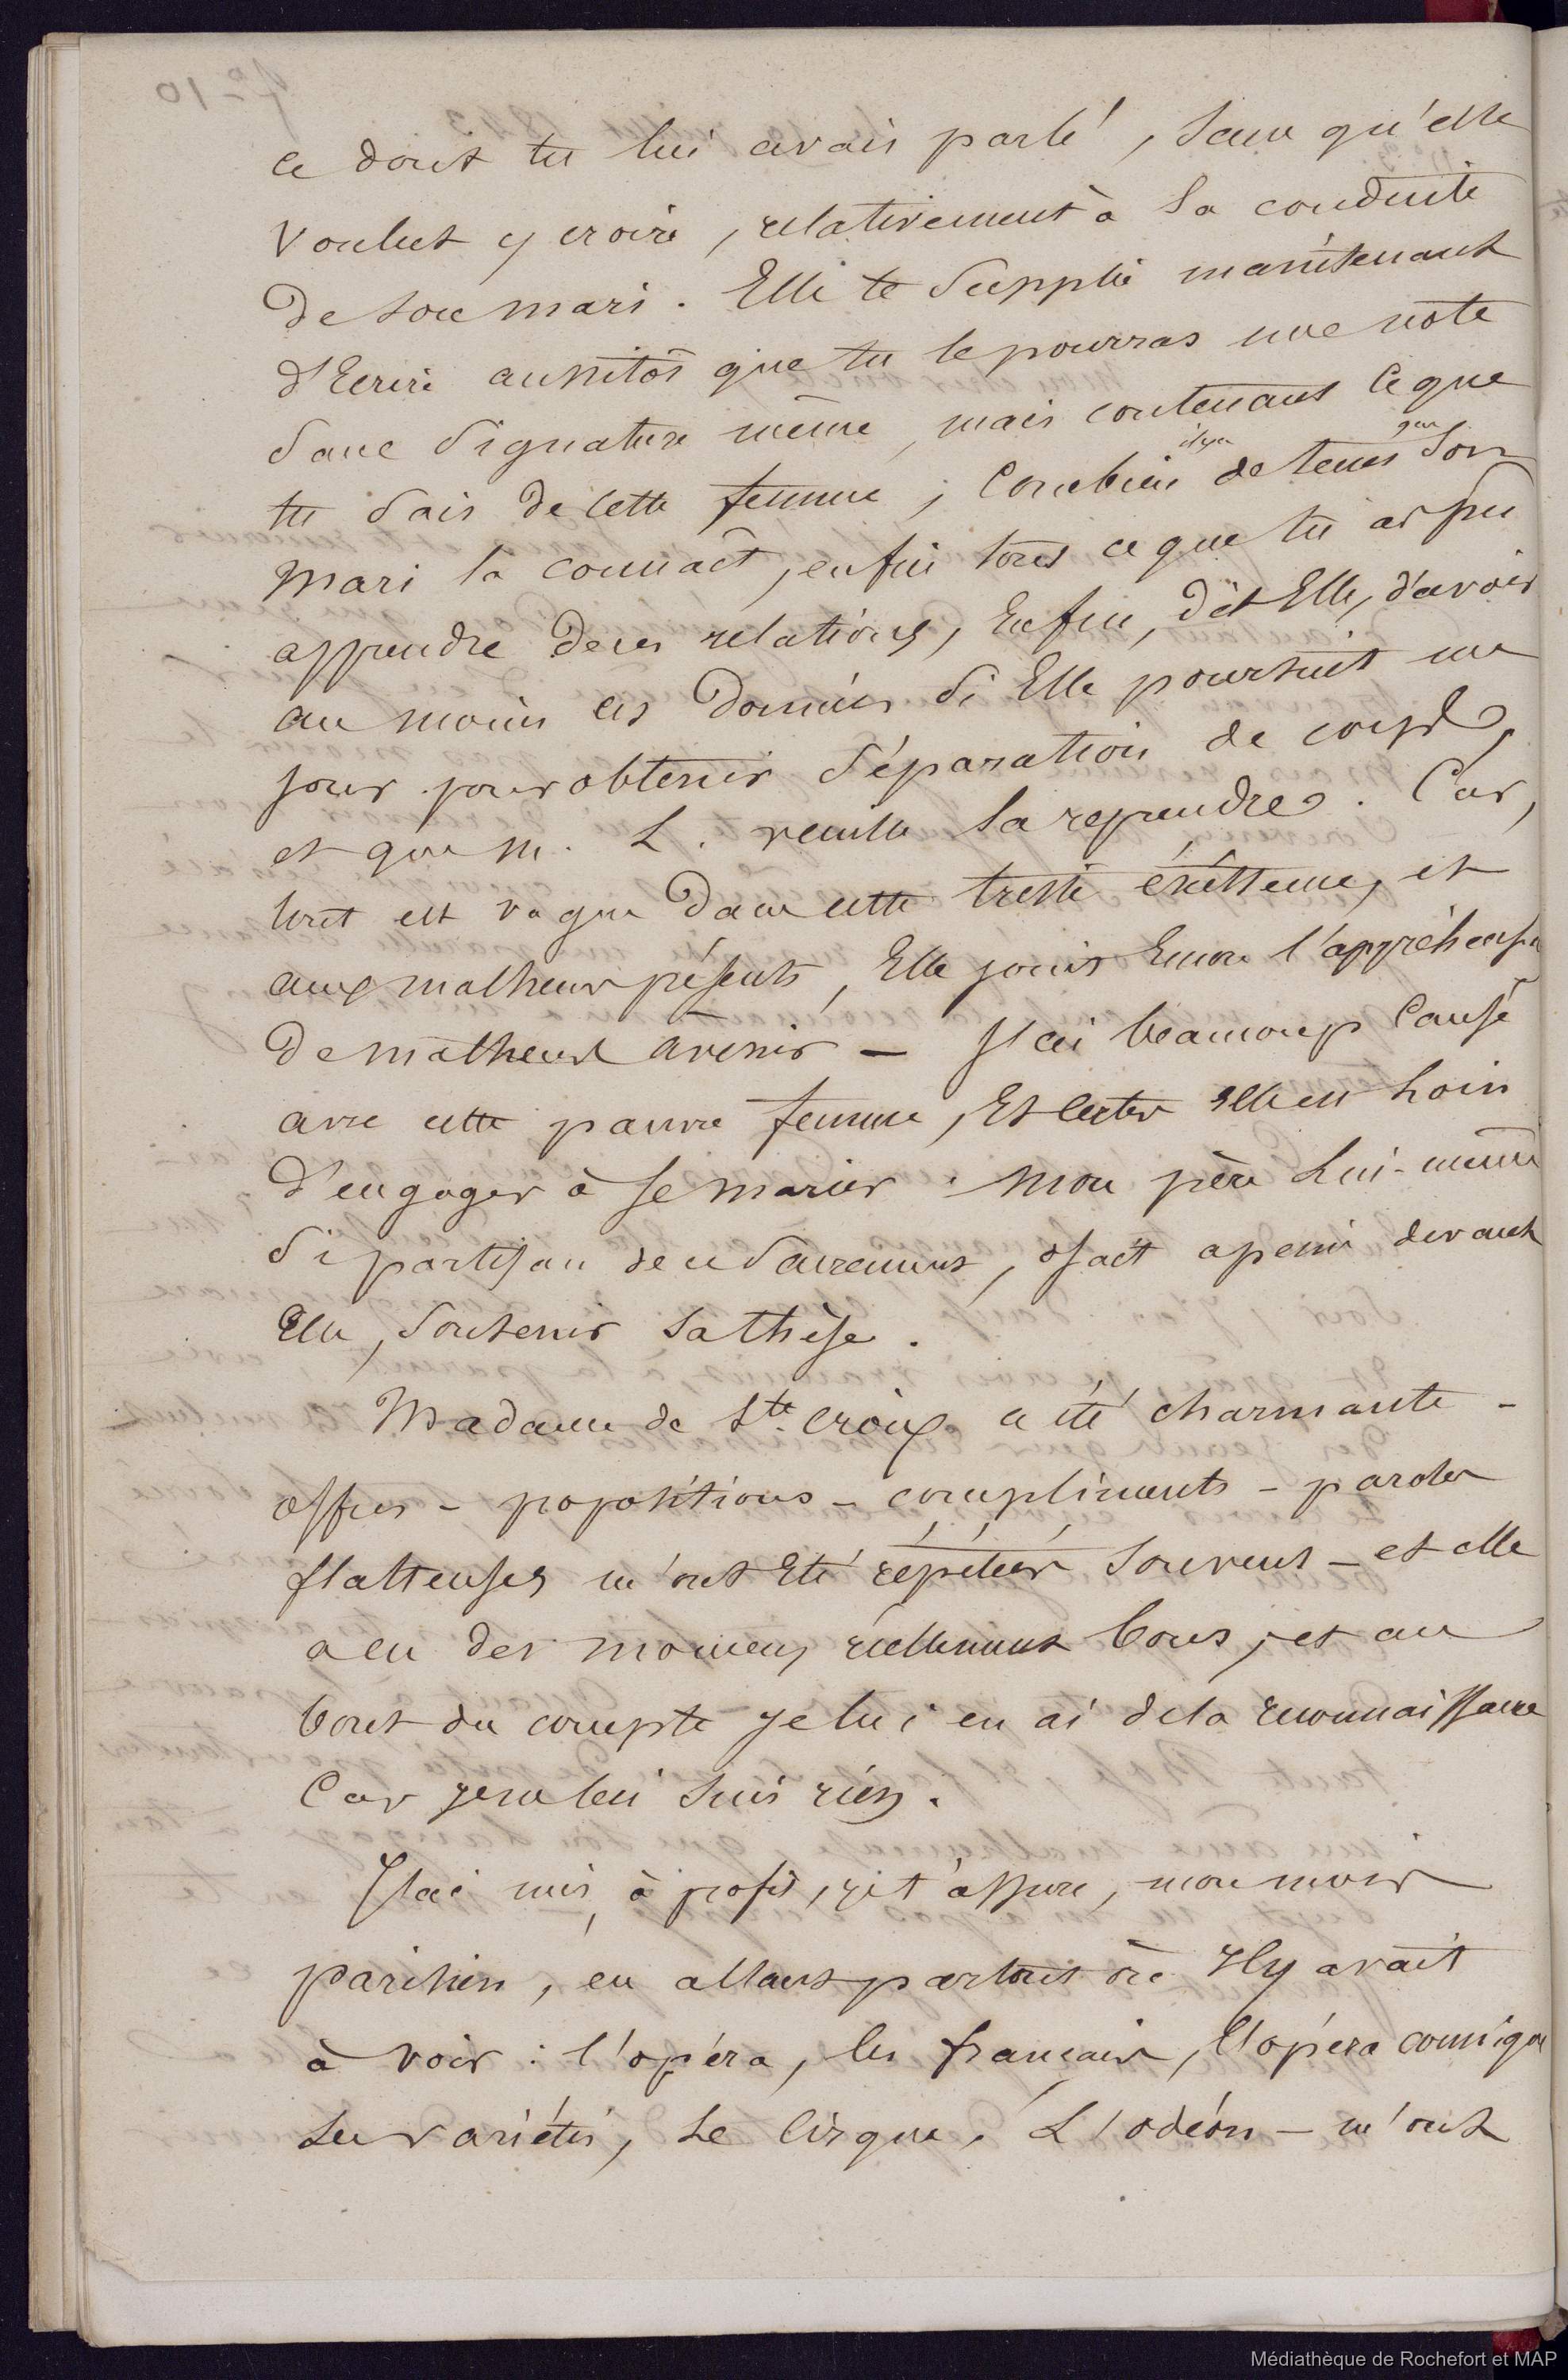 ce dont tu lui avais parlé, sans qu'elle
voulut y croire, relativement à la conduite
de son mari. Elle te supplie maintenant
d'Ecrire aussitôt que tu le pourras une note
sans signature même, mais contenant ce que
tu sais de cette femme, combien il y a de tems que son
mari la connait, enfin tout ce que tu as pu
apprendre de ses relations, Enfin, dit Elle, d'avoir
au moins ces données si Elle poursuit un
jour pour obtenir séparation de corps,
et que M. L. veuille la reprendre. Car,
tout est vague dans cette triste éxistence, et
aux malheurs présents, Elle joint Encore l'appréhension
de malheurs avenir — J'ai beaucoup causé
avec cette pauvre femme, Et certes elle est loin
d'engager à se marier. Mon père lui-même
si partisan de ce sacrement, osait apeine devant
Elle, soutenir sa thèse.
Madame de Ste. Croix a été charmante -
offres - propositions - compliments - paroles
flatteuses m'ont Eté répétées souvent - et elle
a eu des momens réellement bons, et au
bout du compte je lui en ai de la reconnaissance
Car je ne lui suis rien.
J'ai mis à profit, je t'assure, mon mois
parisien, en allant partout où Il y avait
à voir : l'opéra, les français, l'opéra comique
Les variétés, Le Cirque, L'odéon - m'ont
Médiathèque de Rochefort et MAP